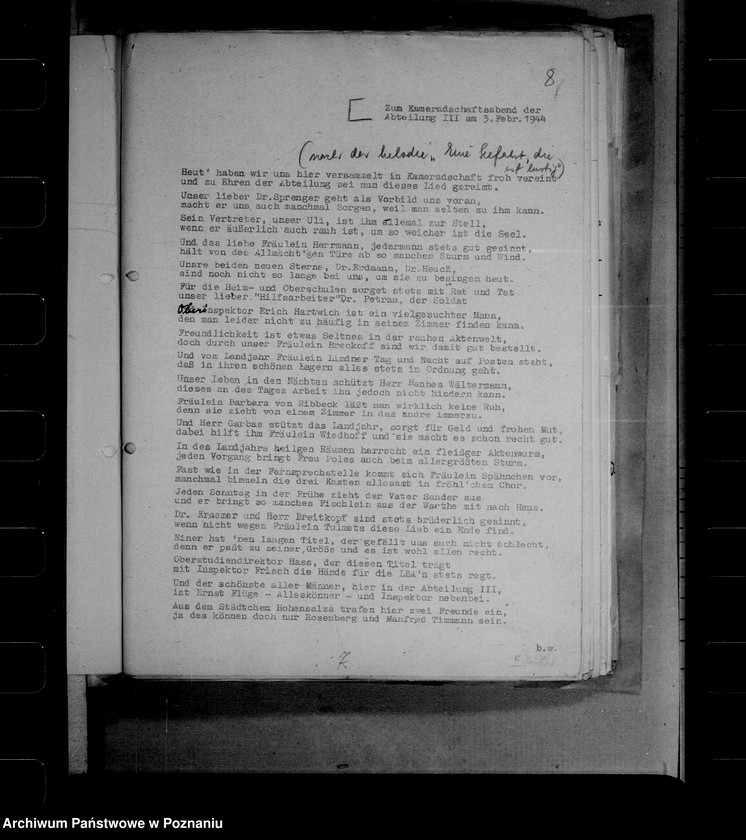 8
Zum Kameradschaftsabend der
Abteilung III am 3.Febr.1944
(nach der Melodie „Eine Seefahrt, die
ist lustig")
Heut' haben wir uns hier versammelt in Kameradschaft froh vereint
und zu Ehren der Abteilung sei nun dieses Lied gereimt.
Unser lieber Dr.Sprenger geht als Vorbild uns voran,
macht er uns auch manchmal Sorgen, weil man selten zu ihm kann.
Sein Vertreter, unser Uli, ist ihm allemal zur Stell,
wenn er äußerlich auch rauh ist, um so weicher ist die Seel.
Und das liebe Fräulein Herrmann, jedermann stets gut gesinnt,
hält von des Allmächt'gen Türe ab so manchen Sturm und Wind.
Unsre beiden neuen Sterne, Dr.Erdmann, Dr.Heuck,
sind noch nicht so lange bei uns, um sie zu besingen heut.
Für die Heim- und Oberschulen sorget stets mit Rat und Tat
unser lieber "Hilfsarbeiter" Dr. Petrau, der Soldat
Oberinspektor Erich Hartwich ist ein vielgesuchter Mann,
den man leider nicht zu häufig in seinem Zimmer finden kann.
Freundlichkeit ist etwas Seltnes in der rauhen Aktenwelt,
doch durch unser Fräulein Breckoff sind wir damit gut bestellt.
Und vom Landjahr Fräulein Lindner Tag und Nacht auf Posten steht,
daß in ihren schönen Lagern alles stets in Ordnung geht.
Unser Leben in den Nächten schützt Herr Hannes Wältermann,
dieses an des Tages Arbeit ihn jedoch nicht hindern kann.
Fräulein Barbara von Ribbeck läßt man wirklich keine Ruh,
denn sie zieht von einem Zimmer in das andre immerzu.
Und Herr Garbas stützt das Landjahr, sorgt für Geld und frohen Mut,
dabei hilft ihm Fräulein Wiedhoff und sie macht es schon recht gut.
In des Landjahrs heilgen Räumen herrscht ein fleißger Aktenwurm,
jeden Vorgang bringt Frau Poles auch beim allergrößten Sturm.
Fast wie in der Fernsprechstelle kommt sich Fräulein Spähnchen vor,
manchmal bimmeln die drei Kasten allesamt in fröhl'chem Chor.
Jeden Sonntag in der Frühe zieht der Vater Sander aus
und er bringt so manches Fischlein aus der Warthe mit nach Haus.
Dr. Kraemer und Herr Breitkopf sind stets brüderlich gesinnt,
wenn nicht wegen Fräulein Tulmets diese Lieb ein Ende find.
Einer hat 'nen langen Titel, der gefällt uns auch nicht schlecht,
denn er paßt zu seiner Größe und es ist wohl allen recht.
Oberstudiendirektor Hass, der diesen Titel trägt
mit Inspektor Frisch die Hände für die LBA's stets regt.
Und der schönste aller Männer, hier in der Abteilung III,
ist Ernst Flüge - Alleskönner - und Inspektor nebenbei.
Aus dem Städtchen Hohensalza trafen hier zwei Freunde ein,
ja das können doch nur Rosenberg und Manfred Timmann sein.
b.w.
7
Archiwum Państwowe w Poznaniu